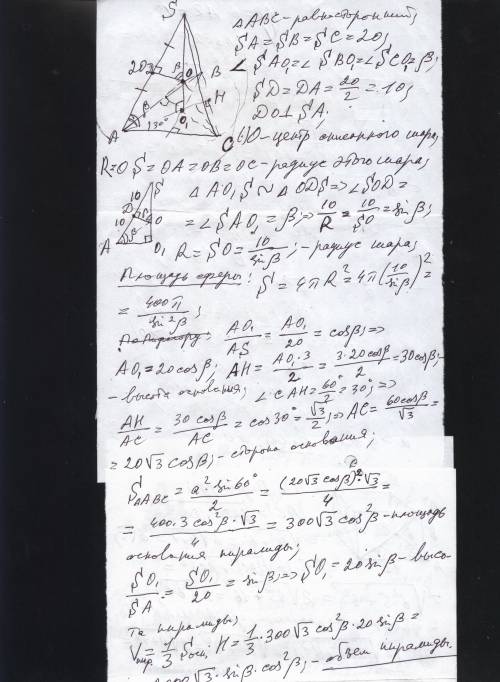 S
20
D
β
O
B
H
β
O₁
A
30°
C
△ABC – равносторонний;
SA = SB = SC = 20;
∠SAO₁ = ∠SBO₁ = ∠SCO₁ = β;
SD = DA = 20/2 = 10;
DO ⊥ SA;
O – центр описанного шара,
R = OS = OA = OB = OC – радиус этого шара;
10
S
D
10
β
O
A
β
O₁
△AO₁S ~ △ODS ⇒ ∠SOD =
= ∠SAO₁ = β; ⇒ 10/R = 10/SO = sinβ;
R = SO = 10/sinβ; – радиус шара;
Площадь сферы: S = 4πR² = 4π(10/sinβ)² =
= 400π/sin²β;
AO₁/AS = AO₁/20 = cosβ; ⇒
AO₁ = 20cosβ; AH = AO₁·3/2 = 3·20cosβ/2 = 30cosβ; –
– высота основания; ∠CAH = 60°/2 = 30°; ⇒
AH/AC = 30cosβ/AC = cos30° = √3/2; ⇒ AC = 60cosβ/√3 =
= 20√3 cosβ; – сторона основания;
S△ABC = a²·sin60°/2 = (20√3 cosβ)²·√3/4 =
= 400·3cos²β·√3/4 = 300√3 cos²β – площадь
основания пирамиды;
SO₁/SA = SO₁/20 = sinβ; ⇒ SO₁ = 20sinβ – высо-
та пирамиды;
Vпир. = 1/3 Sосн·H = 1/3·300√3 cos²β·20sinβ =
√3·sinβ·cos²β; – объем пирамиды.